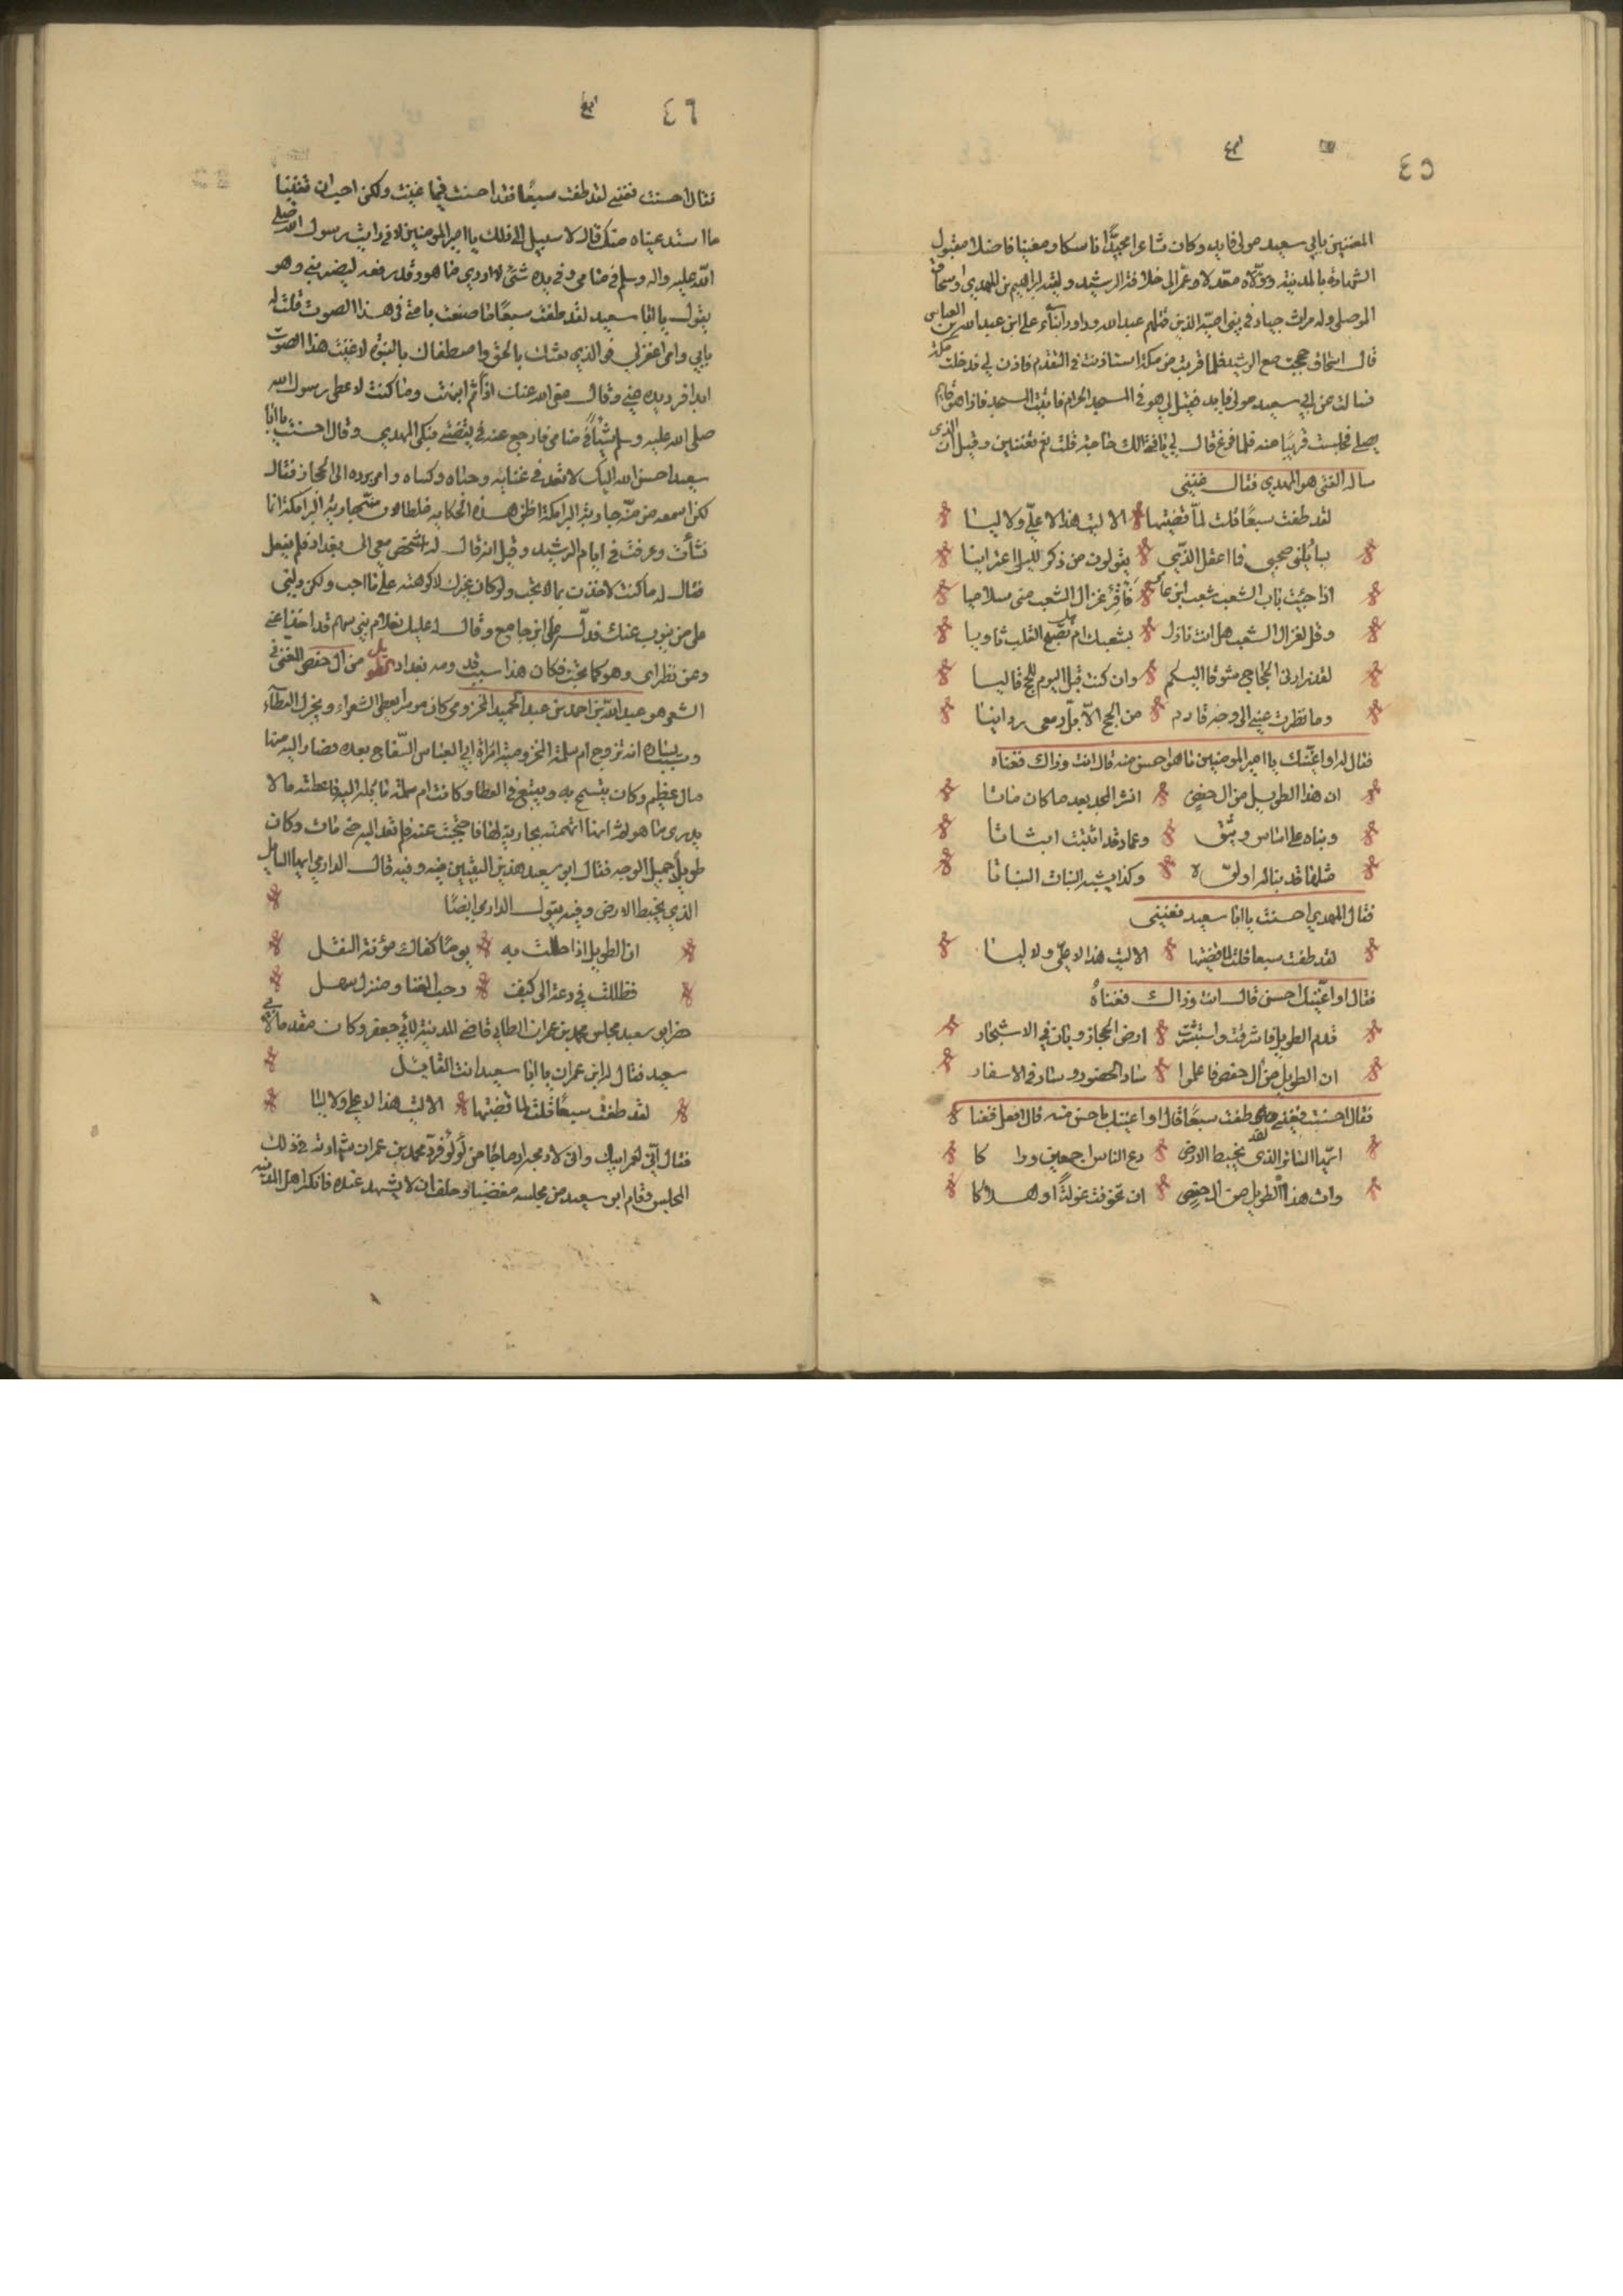 ٤٥
المغنين بابي سعيد مولى فايد وكان شاعرا مجيدًا ناسكا ومغنيا فاضلا مقبول
الشهادة بالمدينة وولاه معدلا وعمر الى خلافة الرشيد ولقيه ابراهيم بن المهدي واسحاق
الموصلي وله مراث جياد في بني امية الذين قتلهم عبد الله وداود ابناء علي ابن عبد الله بن العباس
قال اسحاق حججت مع الرشيد فلما قربت من مكة استاذنت في التقدم فاذن لي فدخلت مكة
فسالت عن ابي سعيد مولى فايد فقيل لي هو في المسجد الحرام فاتيت المسجد فاذا هو قايم
يصلي فجلست قريبًا منه فلما فرغ قال لي يا فتى الك حاجة قلت نعم تغنيني وقيل ان الذي
ساله الغنى هو المهدي فقال غنيني
لقد طفت سبعًا قلت لما قضيتها الا ليت هذا لا عليّ ولا ليا
يسائلني صحبي فما اعقل الذي يقولون من ذكر لليلى اعترانيا
اذا جئت باب الشعب شعب ابن عامر فاقرئ غزال الشعب مني سلاميا
وقل لغزال الشعب هل انت نازل بشعبك ام هل يصبح القلب ثاويا
لقد زادني الحجاج شوقا اليكم وان كنت قبل اليوم للحج قاليا
وما نظرت عيني الى وجه قادم من الحج الا بل دمعي ردائيا
فقال له او اغنيك يا امير المؤمنين ما هو احسن منه قال انت وذاك فغناه
ان هذا الطويل من ال حفص انشر المجد بعد ما كان ماتا
وبناه على اساس وثيق وعماد قد اثبتت اثباتا
مثلما قد بنا له اولوه وكذا يشبه النبات النباتا
فقال المهدي احسنت يا ابا سعيد فغنيني
لقد طفت سبعا قلت لما قضيتها الا ليت هذا لا عليّ ولا ليا
فقال او اغنيك احسن قال انت وذاك فغناه
قدم الطويل فاشرقت واستبشرت ارض الحجاز وبان في الاشجار
ان الطويل من ال حفص فاعلموا ساد الحضور وساد في الاسفار
فقال احسنت فغنني لقد طفت سبعًا قال او اغنيك باحسن منه قال افعل فغناه
ايها السائل الذي يخبط الارض دع الناس اجمعين وراكا
وات هذا الطويل من ال حفص ان تخوفت عولةً او هلاكا
٤٦
فقال احسنت فغنني لقد طفت سبعًا فقد احسنت فيما غنيت ولكن احب ان تغنينا
ما استدعيناه منك قال لا سبيل الى ذلك يا امير المؤمنين لاني رايت رسول الله صلى
الله عليه واله وسلم في منامي وفي يده شئ لا ادري ما هو وقد رفعه ليضربني وهو
يقول يا ابا سعيد لقد طفت سبعًا ما صنعت بامتي في هذا الصوت قلت له
بابي وامي اغفر لي فوالذي بعثك بالحق واصطفاك بالنبوة لا غنيت هذا الصوت
ابدا فرد يده عني وقال عفى الله عنك اذًا ثم انتبهت وما كنت لاعطي رسول الله
صلى الله عليه وسلم شيئًا في منامي فارجع عنه في يقظتي فبكى المهدي وقال احسنت يا ابا
سعيد احسن الله اليك لا تعد في غنائه وحباه وكساه وامر برده الى الحجاز فقال
لكن اسمعه من منّة جارية البرامكة اظن هذه الحكايه غلطا لان منّة جارية البرامكة انما
نشأت وعرفت في ايام الرشيد وقيل انه قال له اشخص معي الى بغداد فلم يفعل
فقال له ما كنت لاخذك بما لا تحب ولو كان غيرك لاكرهته على ما احب ولكن دلني
على من ينوب عنك فدله على ابن جامع وقال له عليك بغلام بني سهم قد اخذ عني
وعن نظراي وهو كما تحب فكان هذا سبب قدومه بغداد الطويل من ال حفص المغنى في
الشعر هو عبد الله بن احمد بن عبد الحميد المخزومي كان موسرا يعطي الشعراء ويجزل العطاء
وسبب يساره انه تزوج ام سلمة المخزومية امراة ابي العباس السفاح بعده فصار اليه منها
مال عظيم وكان يتسمح به ويتسع في العطا وكانت ام سلمة مائله اليه فاعطته مالا
يدري ما هو ثم انها اتهمته بجارية لها فاحتجبت عنه فلم تعد اليه حتى مات وكان
طويلًا جميل الوجه فقال ابو سعيد هذين البيتين فيه وفيه قال الدارمي ايها السايل
الذي يخبط الارض وفيه يقول الدارمي ايضًا
ان الطويل اذا حللت به يومًا كفاك مؤنة الثقل
فظللت في دعة الى كنف رحب الفنا ومنزل سهل
حضر ابو سعيد مجلس محمد بن عمران الطالبي قاضي المدينة لابي جعفر وكان مقدما لابي
سعيد فقال له ابن عمران يا ابا سعيد انت القايل
لقد طفت سبعًا قلت لما قضيتها الا ليت هذا لا علي ولا ليا
فقال اي لعمر ابيك واني لادمجه ادماجًا من لؤلؤ فرد محمد بن عمران شهادته في ذلك
المجلس وقام ابو سعيد من مجلسه مغضبا وحلف ان لا يشهد عنده فانكر اهل المدينة